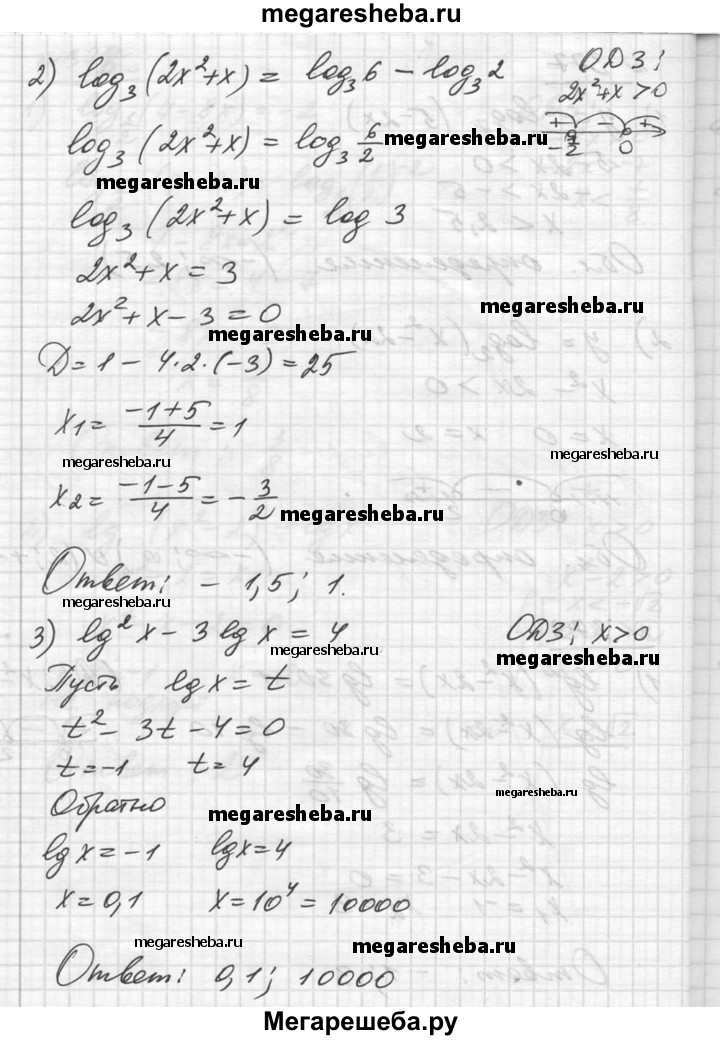 megaresheba.ru
2) log₃(2x²+x) = log₃6 − log₃2 ОДЗ:
2x²+x>0
log₃(2x²+x) = log₃ 6/2 megaresheba.ru + − +
−1/2 0
megaresheba.ru
log₃(2x²+x) = log 3
2x²+x = 3
megaresheba.ru
2x²+x−3=0
megaresheba.ru
D=1−4·2·(−3)=25
x1= (−1+5)/4 =1
megaresheba.ru megaresheba.ru
x2= (−1−5)/4 = −3/2
megaresheba.ru
Ответ: −1,5; 1.
megaresheba.ru
3) lg²x−3lg x = 4 ОДЗ: x>0
megaresheba.ru
megaresheba.ru
Пусть lg x = t
t²−3t−4=0
t=−1 t=4
megaresheba.ru
Обратно
megaresheba.ru
lg x=−1 lg x=4
x=0,1 x=10⁴=10000
megaresheba.ru
megaresheba.ru
Ответ: 0,1; 10000
Мегарешеба.ру